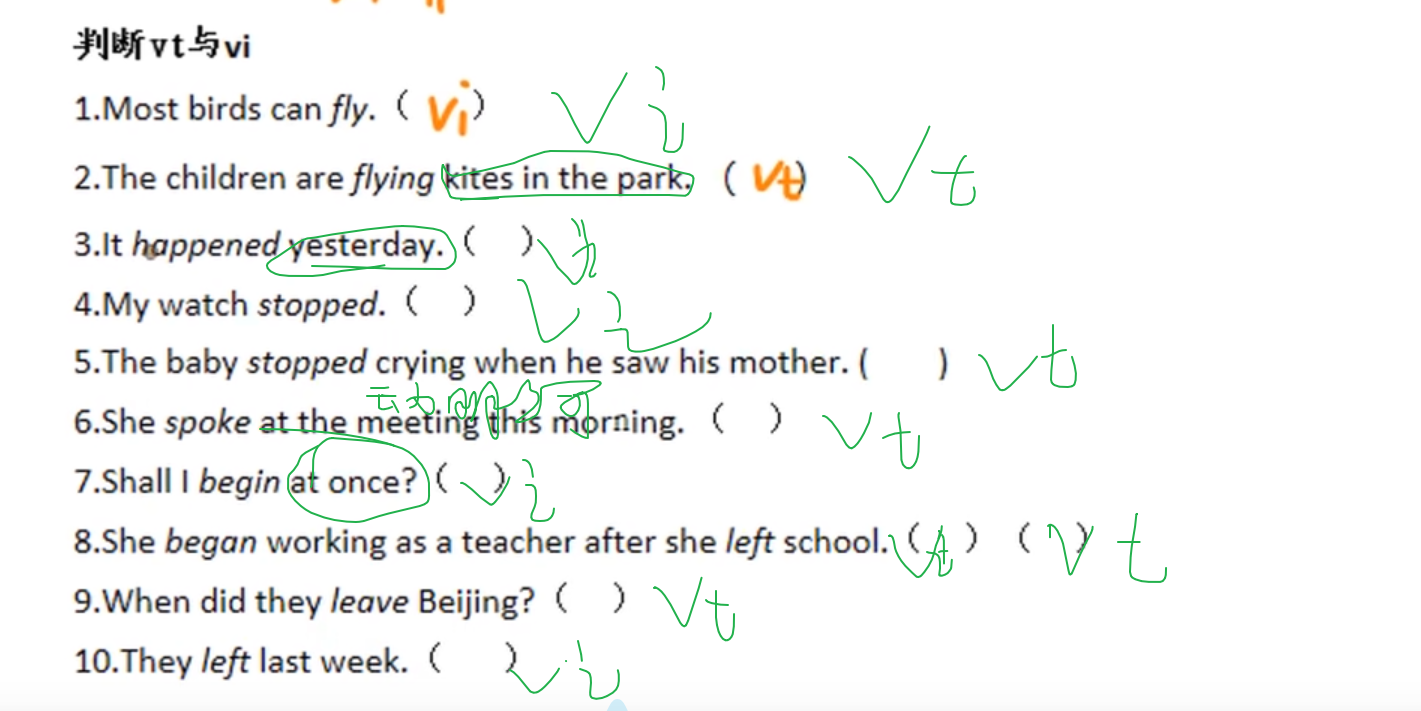 判断vt与vi
1.Most birds can fly. ( Vi ) Vi
2.The children are flying kites in the park. ( Vt ) Vt
3.It happened yesterday. ( ) Vt
4.My watch stopped. ( ) Vi
5.The baby stopped crying when he saw his mother. ( ) Vt
6.She spoke at the meeting this morning. ( ) Vt
7.Shall I begin at once? ( ) Vi
8.She began working as a teacher after she left school. ( Vt ) ( ) Vt
9.When did they leave Beijing? ( ) Vt
10.They left last week. ( ) Vi